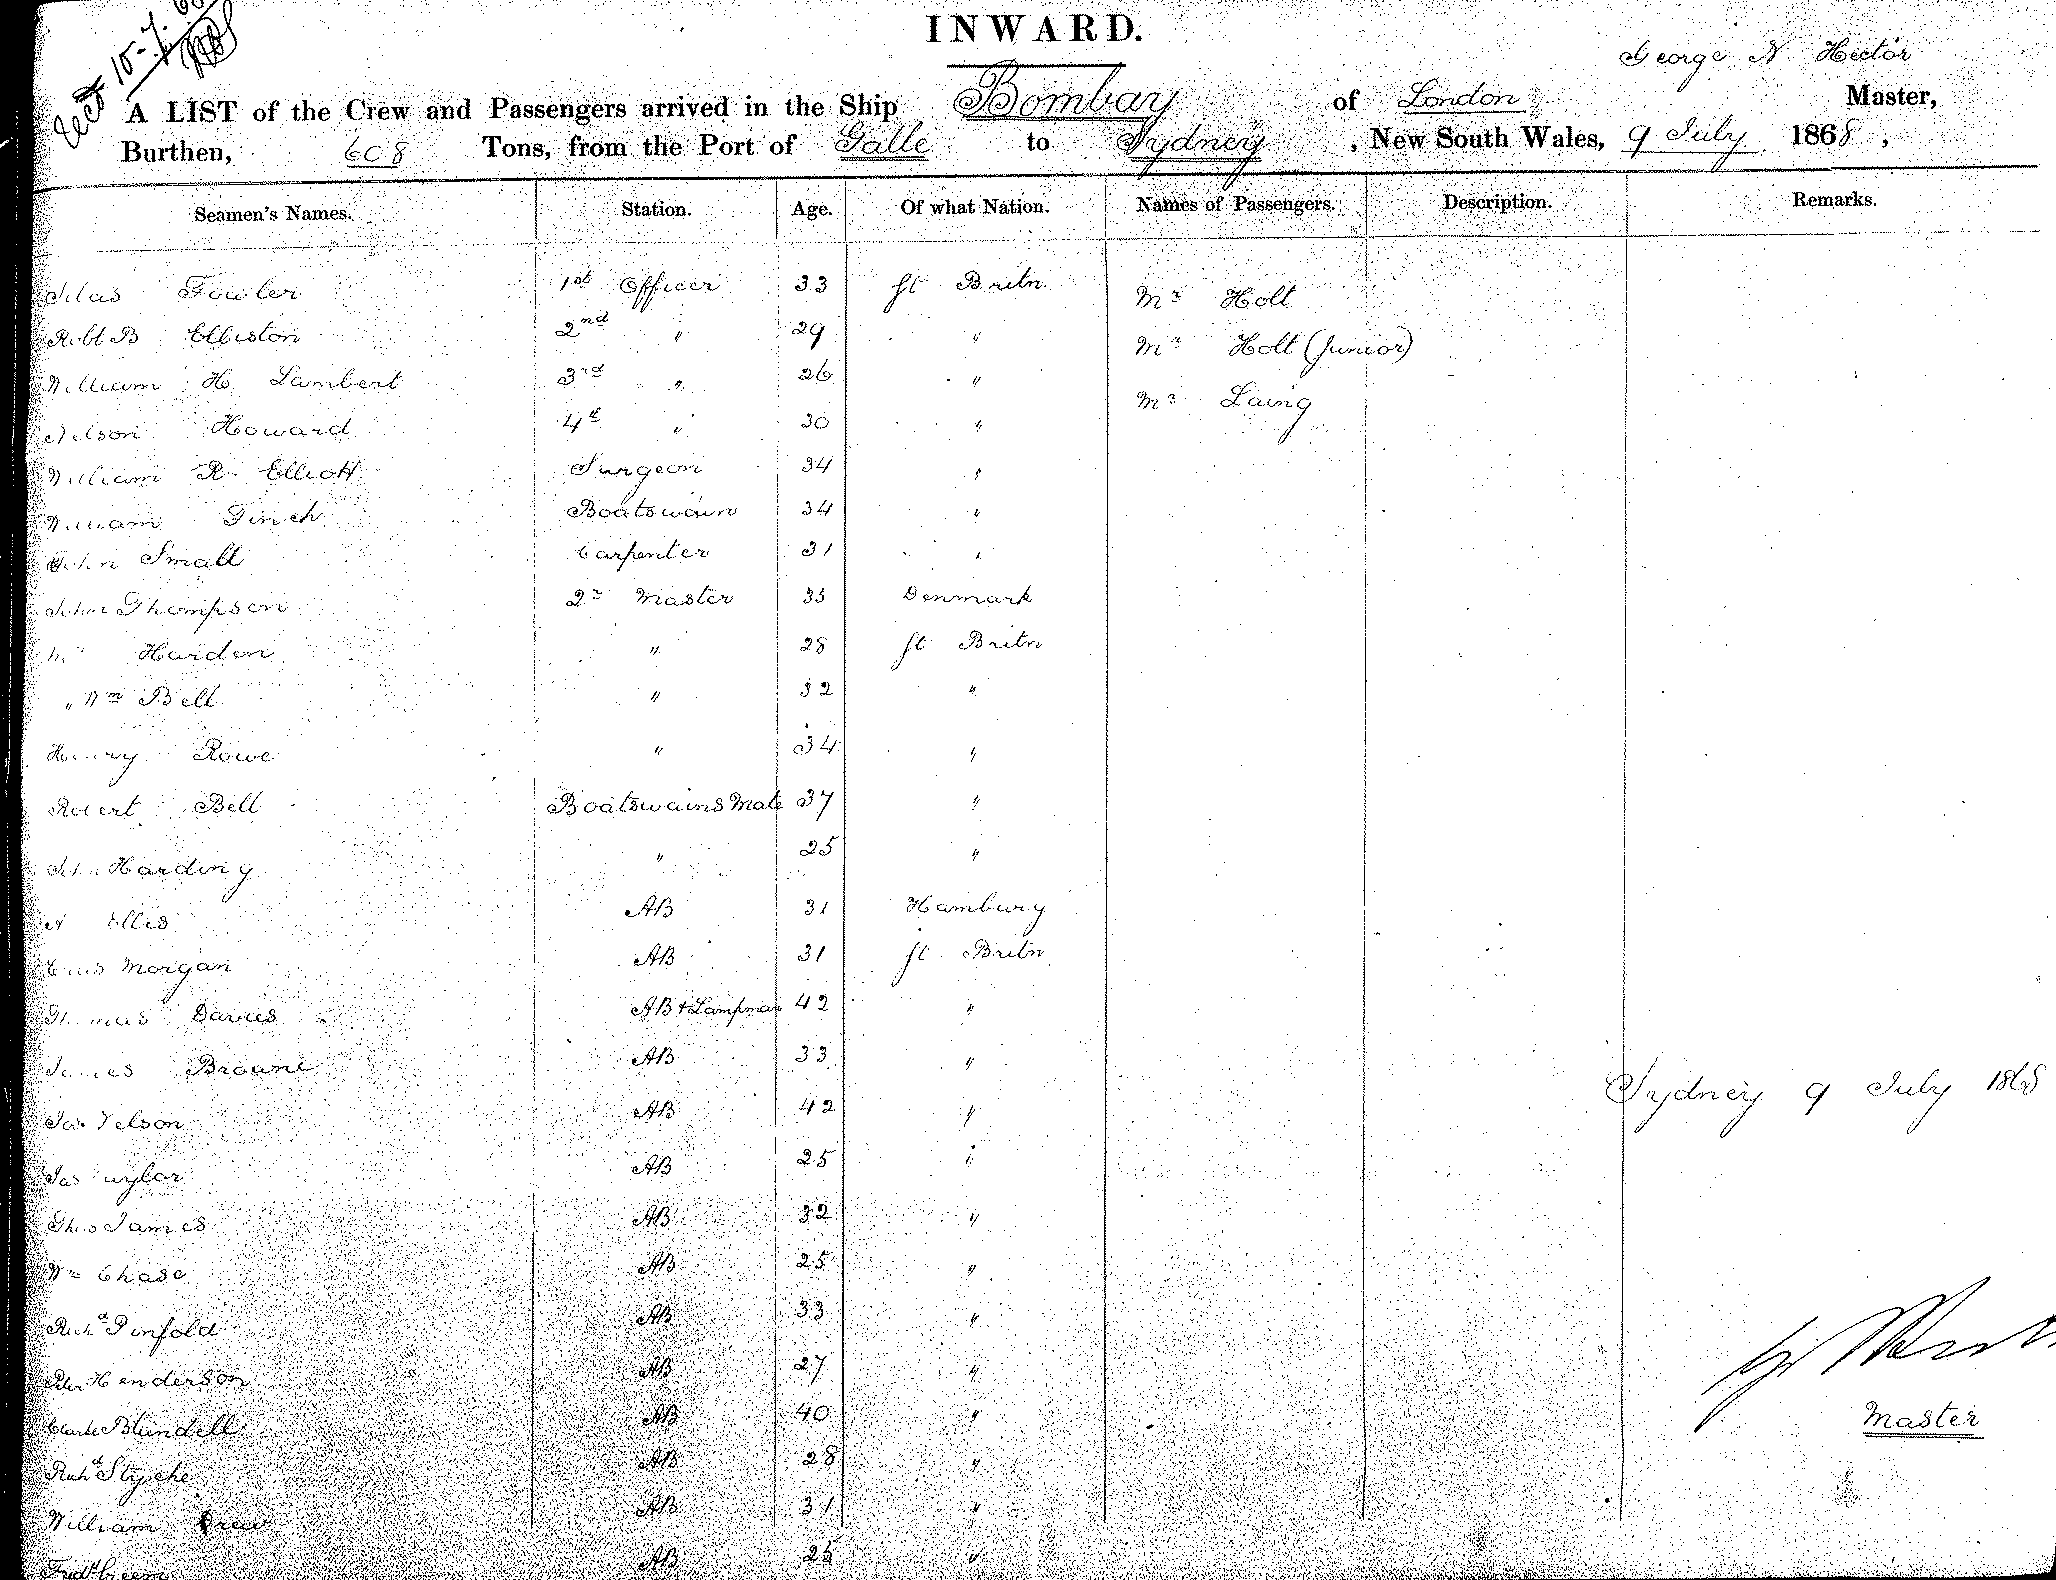 INWARD.
George N Hector
A LIST of the Crew and Passengers arrived in the Ship Bombay of London Master,
Burthen, 608 Tons, from the Port of Galle to Sydney, New South Wales, 9 July 1868,
Seamen's Names. Station. Age. Of what Nation. Names of Passengers. Description. Remarks.
Silas Fowler 1st Officer 33 Gt Britn Mr Holt
Robt B Elliston 2nd " 29 " Mr Holt (Junior)
William H. Lambert 3rd " 26 " Mr Laing
Nelson Howard 4th " 30 "
William R Elliott Surgeon 34 "
William Finch Boatswain 34 "
John Small Carpenter 31 "
John Thompson 2r Master 35 Denmark
Harden " 28 Gt Britn
" Wm Bell " 32 "
Henry Rowe " 34 "
Robert Bell Boatswains Mate 37 "
Harding " 25 "
Ellis AB 31 Hamburg
Morgan AB 31 Gt Britn
Thomas Davies AB & Lampman 42 "
James Browne AB 33 "
Jas Nelson AB 42 "
Jas Taylor AB 25 "
Thos James AB 32 "
Wm Chase AB 25 "
Richd Pinfold AB 33 "
Peter Henderson AB 27 "
Charles Blundell AB 40 "
Richd Styche AB 28 "
William Drew AB 31 "
Fredk Green AB 25 "
Sydney 9 July 1868
Master